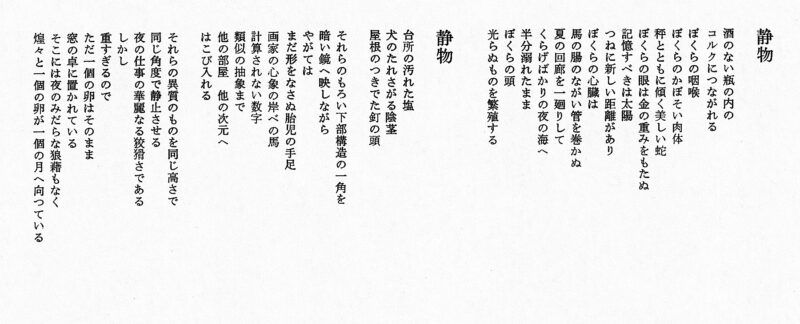 静物
酒のない瓶の内の
コルクにつながれる
ぼくらの咽喉
ぼくらのかぼそい肉体
秤とともに傾く美しい蛇
ぼくらの眼は金の重みをもたぬ
記憶すべきは太陽
つねに新しい距離があり
ぼくらの心臓は
馬の腸のながい管を巻かぬ
夏の回廊を一廻りして
くらげばかりの夜の海へ
半分溺れたまま
ぼくらの頭
光らぬものを繁殖する
静物
台所の汚れた塩
犬のたれさがる陰茎
屋根のつきでた釘の頭
それらのもろい下部構造の一角を
暗い鏡へ映しながら
やがては
まだ形をなさぬ胎児の手足
画家の心象の岸べの馬
計算されない数字
類似の抽象まで
他の部屋　他の次元へ
はこび入れる
それらの異質のものを同じ高さで
同じ角度で静止させる
夜の仕事の華麗なる狡猾さである
しかし
重すぎるので
ただ一個の卵はそのまま
窓の卓に置かれている
そこには夜のみだらな狼藉もなく
煌々と一個の卵が一個の月へ向つている